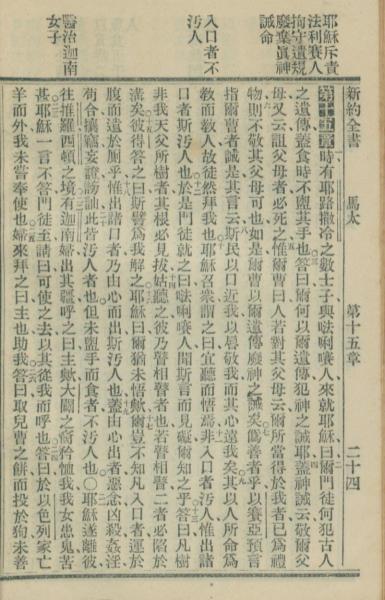 耶穌斥責
法利賽人
拘守遺規
廢棄眞神
誡命
入口者不
汚人
醫治迦南
女子
新約全書 馬太 第十五章 二十四
第十五章 時有耶路撒冷之數士子與㗇唎賽人來就耶穌曰爾門徒何犯古人
之遺傳蓋食時不盥其手也答曰爾何以爾遺傳犯神之誡耶蓋神誡云敬爾父
母又云詛父母者必死之惟爾曹曰人若對其父母云爾所當得於我者已爲禮
物則不敬其父母可也如是爾曹以爾遺傳廢神之誡矣僞善者乎以賽亞預言
指爾曹者誠是其言云斯民以口近我以唇敬我而其心遠我矣其以人所命爲
教而教人故徒然拜我也耶穌召衆謂之曰宜聽而悟焉非入口者汚人惟出諸
口者斯汚人也於是門徒就之曰㗇唎賽人聞斯言而見礙爾知之乎答曰凡樹
非我天父所樹者其根必見拔姑聽之彼乃瞽相瞽者也若瞽相瞽二者必陷於
溝矣彼得答之曰斯譬爲我解之耶穌曰爾猶未悟歟爾豈不知凡入口者運於
腹而遺於厠乎惟出諸口者乃由心而出斯汚人也蓋由心出者惡念凶殺姦淫
苟合攘竊妄證謗讟此皆汚人者也但未盥手而食者不汚人也○耶穌遂離彼
往推羅西頓之境有迦南婦出其疆呼之曰主歟大闢之裔矜恤我我女患鬼苦
甚耶穌一言不答門徒至請曰可使之去以其從我而呼也答曰於以色列家亡
羊而外我未嘗奉使也婦來拜之曰主也助我答曰取兒曹之餅而投於狗未善